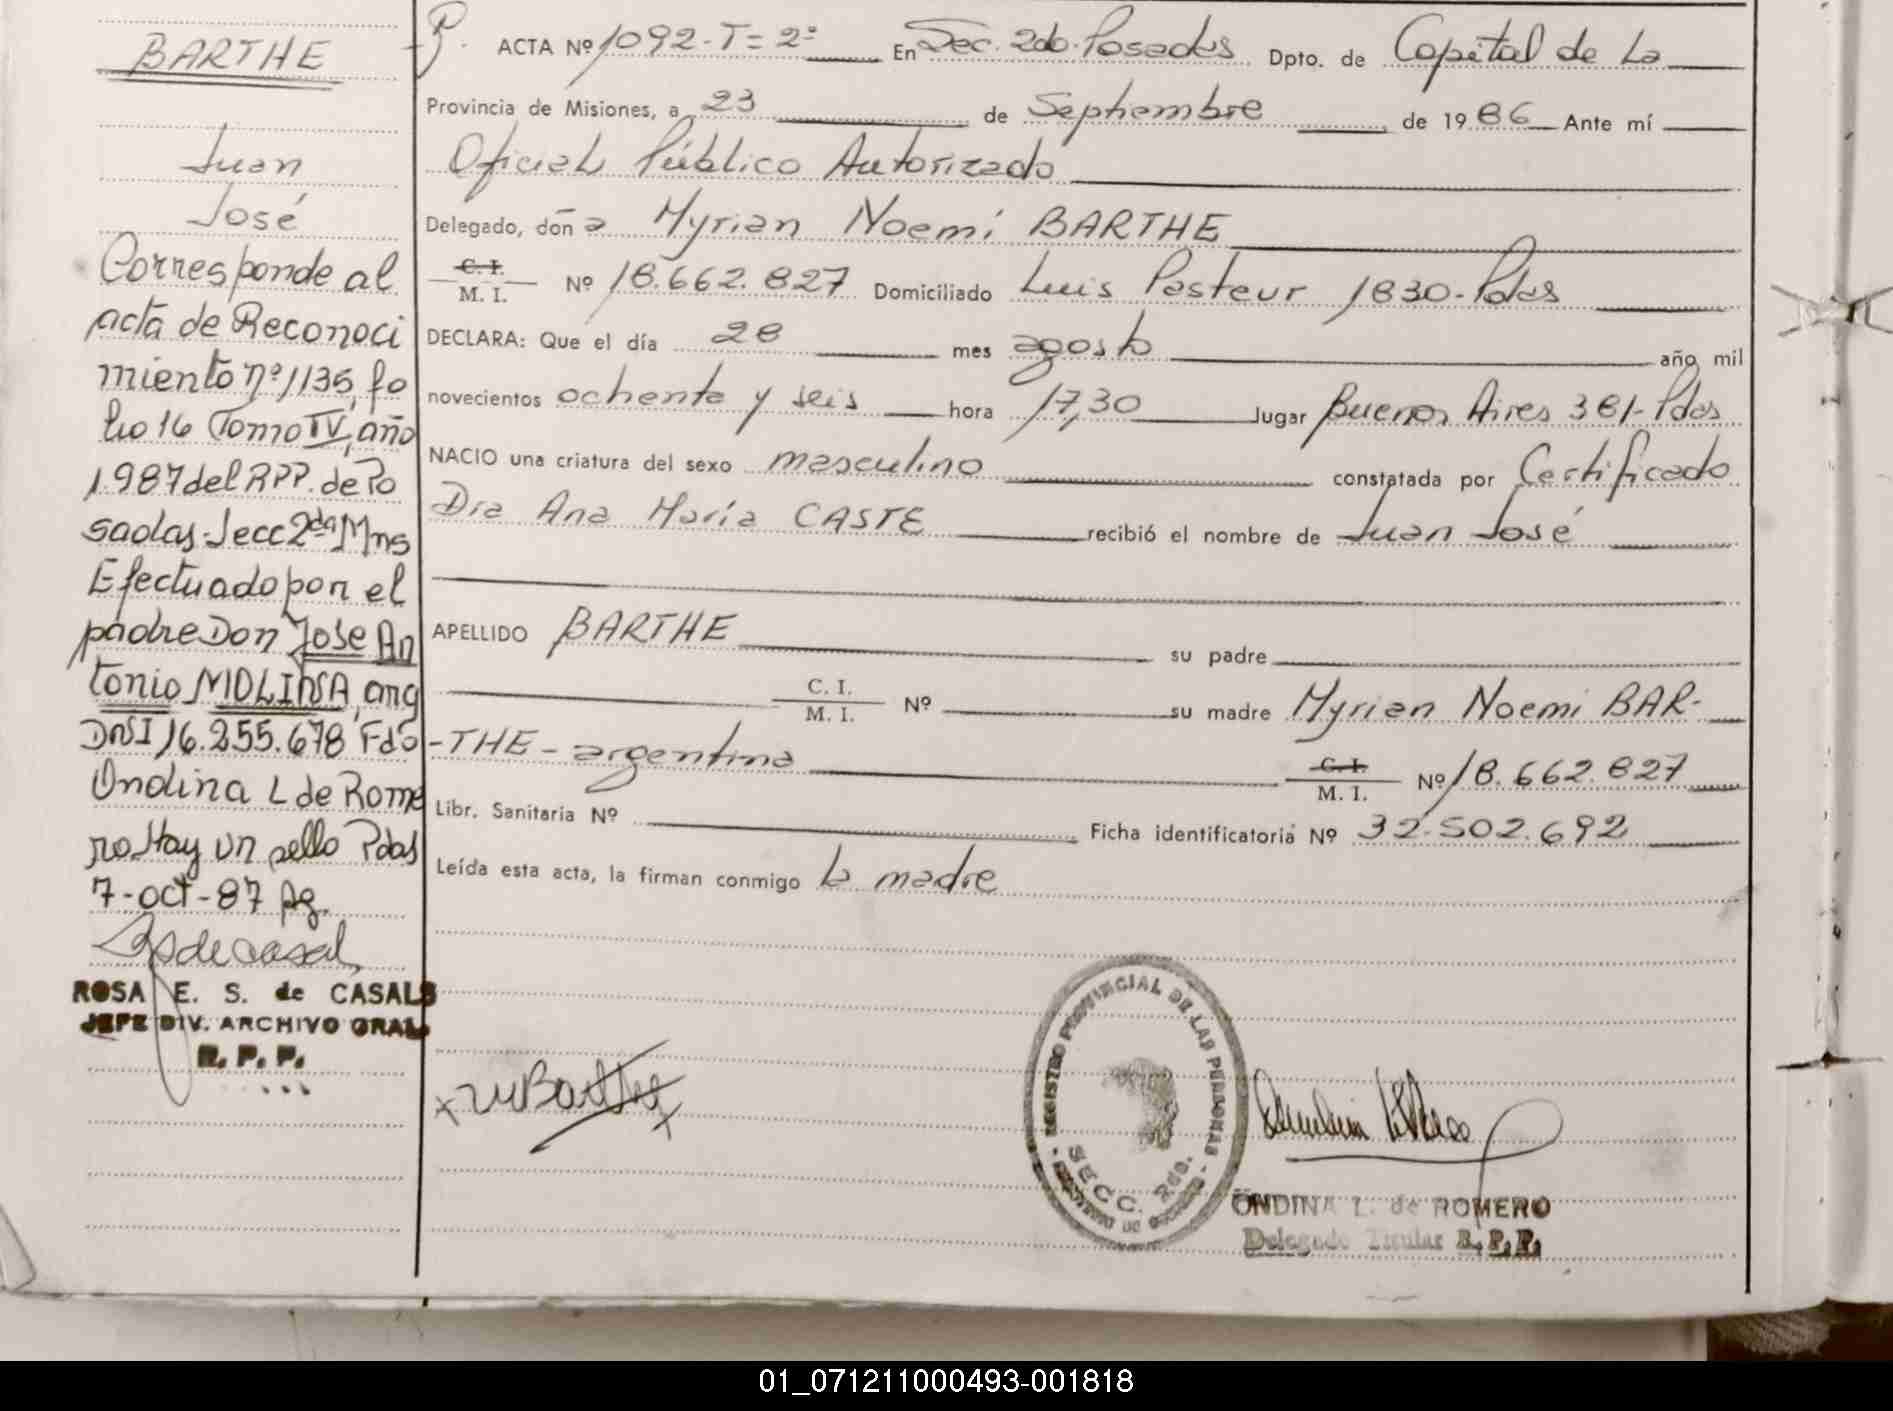 BARTHE
Juan
José
Corresponde al
acta de Reconoci
miento nº 1135, fo
lio 16 Tomo IV, año
1.987 del RPP. de Po
sadas-Secc 2da Mns
Efectuado por el
padre Don Jose An
tonio MOLINA, arg
DNI 16.255.678 Fdo
Ondina L de Rome
ro. Hay un sello Pdas
7-oct-87 Ag.
ROSA E. S. de CASALS
JEFE DIV. ARCHIVO GRAL
R. P. P.
ACTA Nº 1092-T=2º En Sec. 2do. Posadas Dpto. de Capital de La
Provincia de Misiones, a 23 de Septiembre de 1986 Ante mí
Oficial Público Autorizado
Delegado, doña Myrian Noemí BARTHE
C. I.
M. I. Nº 18.662.827 Domiciliado Luis Pasteur 1830-Pdas
DECLARA: Que el día 28 mes agosto año mil
novecientos ochenta y seis hora 17,30 lugar Buenos Aires 381-Pdas
NACIO una criatura del sexo masculino constatada por Certificado
Dra Ana María CASTE recibió el nombre de Juan José
APELLIDO BARTHE su padre
C. I.
M. I. Nº su madre Myrian Noemi BAR-
-THE-argentina C. I.
M. I. Nº 18.662.827
Libr. Sanitaria Nº Ficha identificatoria Nº 32.502.692
Leída esta acta, la firman conmigo la madre
Barthe
REGISTRO PROVINCIAL DE LAS PERSONAS
SECC. 2da.
ONDINA L. de ROMERO
Delegado Titular R. P. P.
01_071211000493-001818